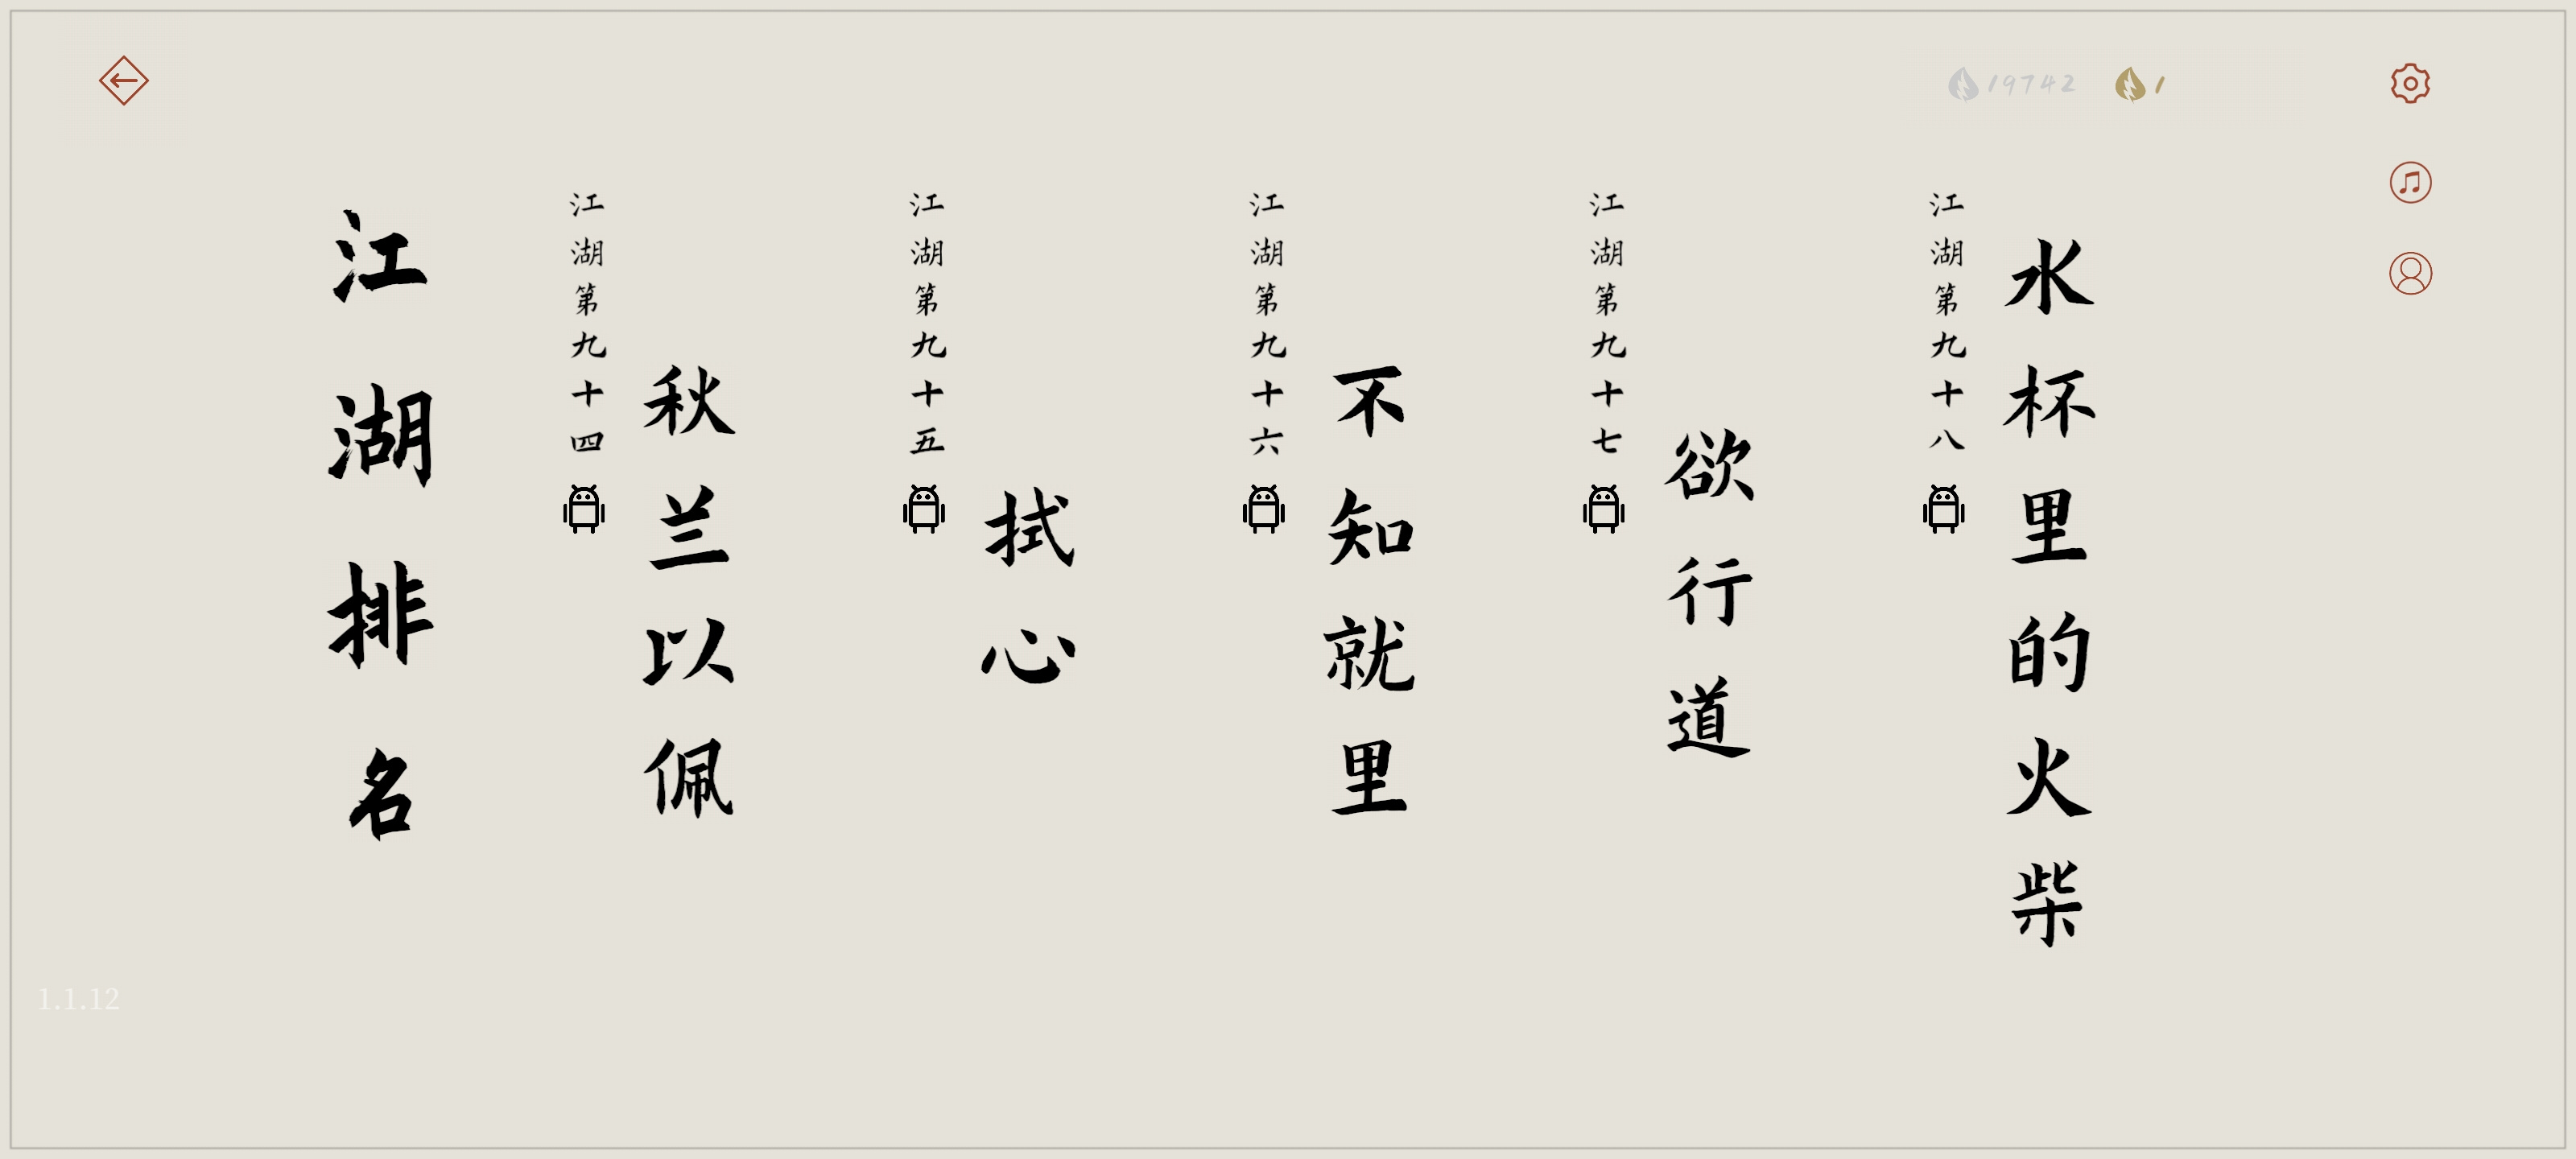 19742
1
江湖排名
江湖第九十四
秋兰以佩
江湖第九十五
拭心
江湖第九十六
不知就里
江湖第九十七
欲行道
江湖第九十八
水杯里的火柴
1.1.12